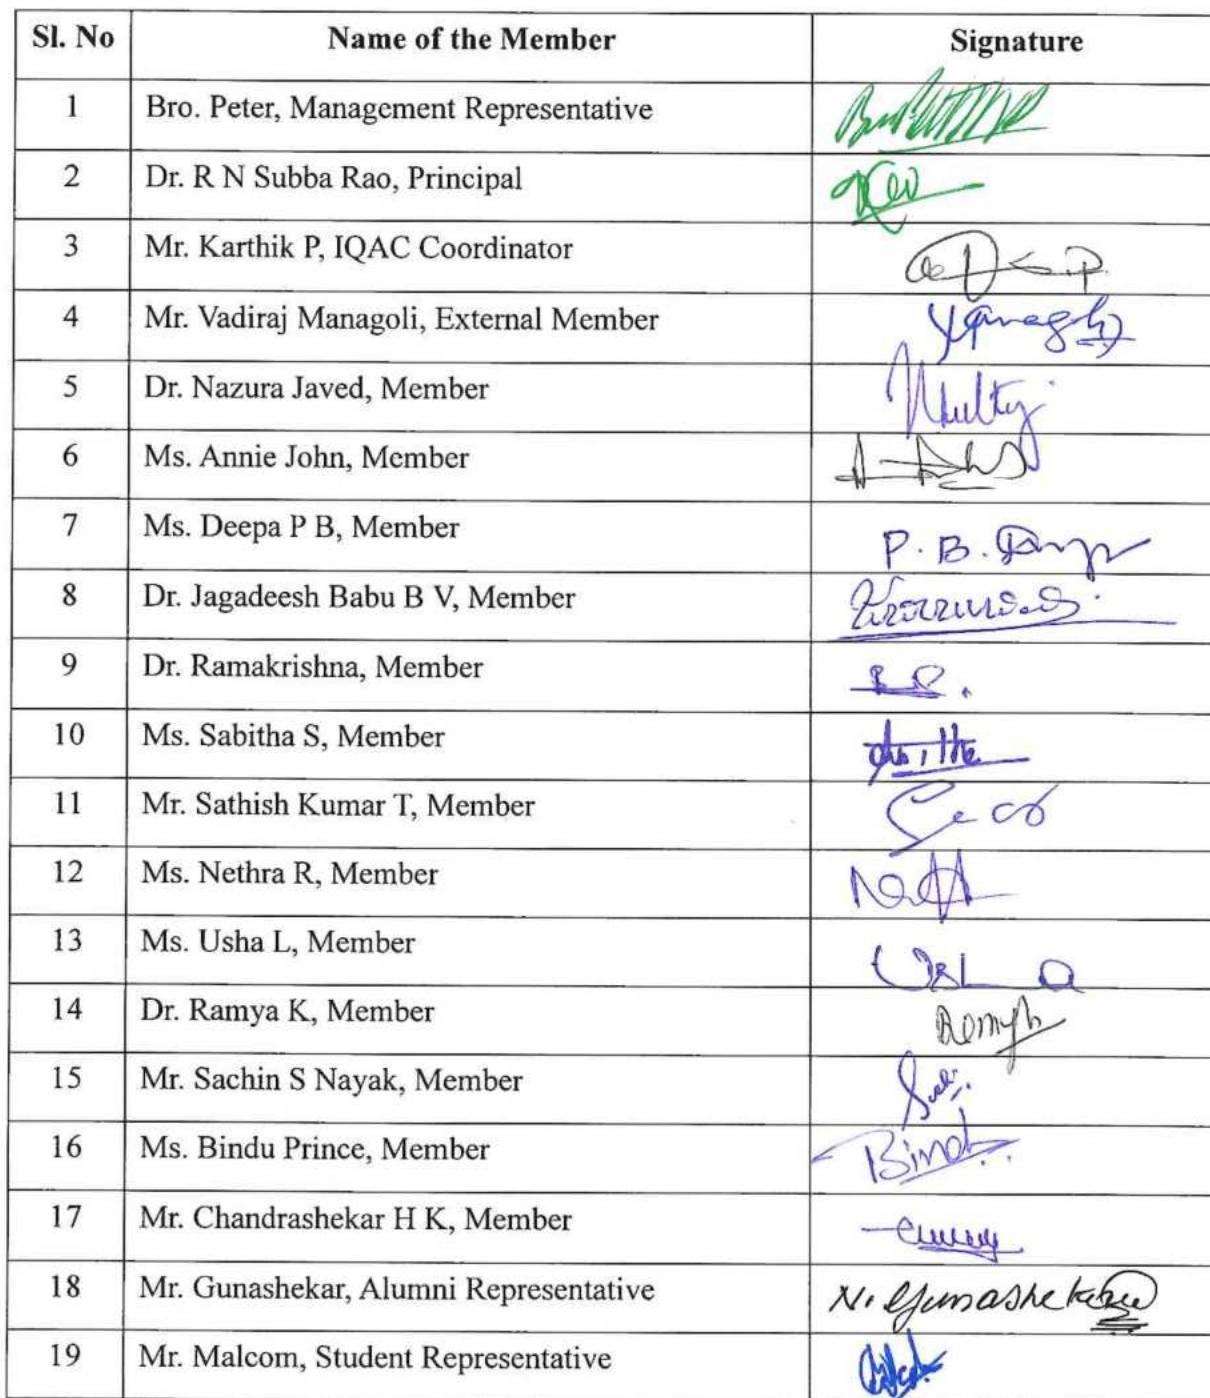 Sl. No Name of the Member Signature
1 Bro. Peter, Management Representative
2 Dr. R N Subba Rao, Principal
3 Mr. Karthik P, IQAC Coordinator
4 Mr. Vadiraj Managoli, External Member
5 Dr. Nazura Javed, Member
6 Ms. Annie John, Member
7 Ms. Deepa P B, Member P. B.
8 Dr. Jagadeesh Babu B V, Member
9 Dr. Ramakrishna, Member
10 Ms. Sabitha S, Member
11 Mr. Sathish Kumar T, Member
12 Ms. Nethra R, Member
13 Ms. Usha L, Member
14 Dr. Ramya K, Member
15 Mr. Sachin S Nayak, Member
16 Ms. Bindu Prince, Member
17 Mr. Chandrashekar H K, Member
18 Mr. Gunashekar, Alumni Representative
19 Mr. Malcom, Student Representative